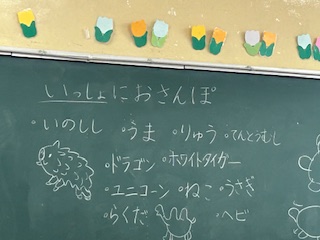 いっしょにおさんぽ
・いのしし ・うま ・りゅう ・てんとうむし
・ドラゴン ・ホワイトタイガー
・ユニコーン ・ねこ ・うさぎ
・らくだ ・ヘビ